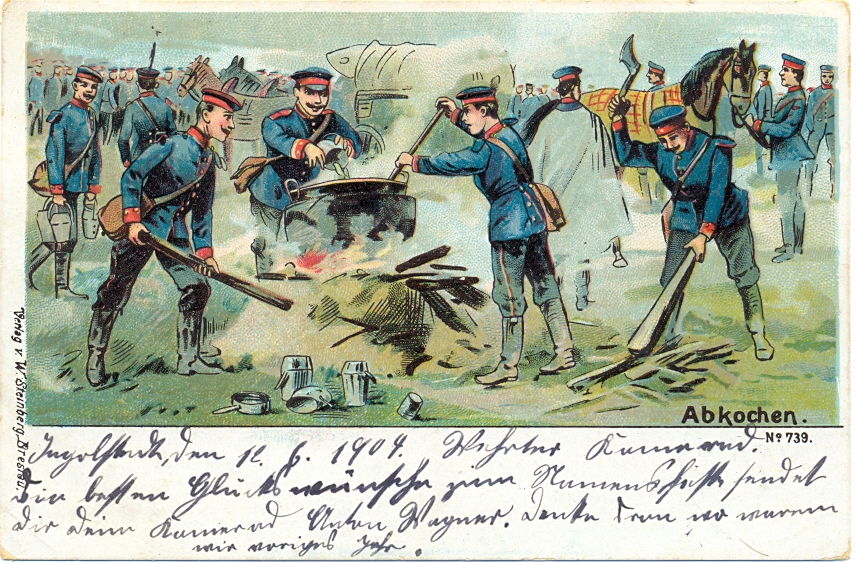 Abkochen.
No 739.
Verlag v. W. Steinberg, Breslau.
Ingolstadt, den 12. 6. 1904. Wehrter Kamerad.
Die besten Glückswünsche zum Namensfeste sendet
Dir Dein Kamerad Anton Wagner. Denke dran wo warem
wir voriges Jahr.